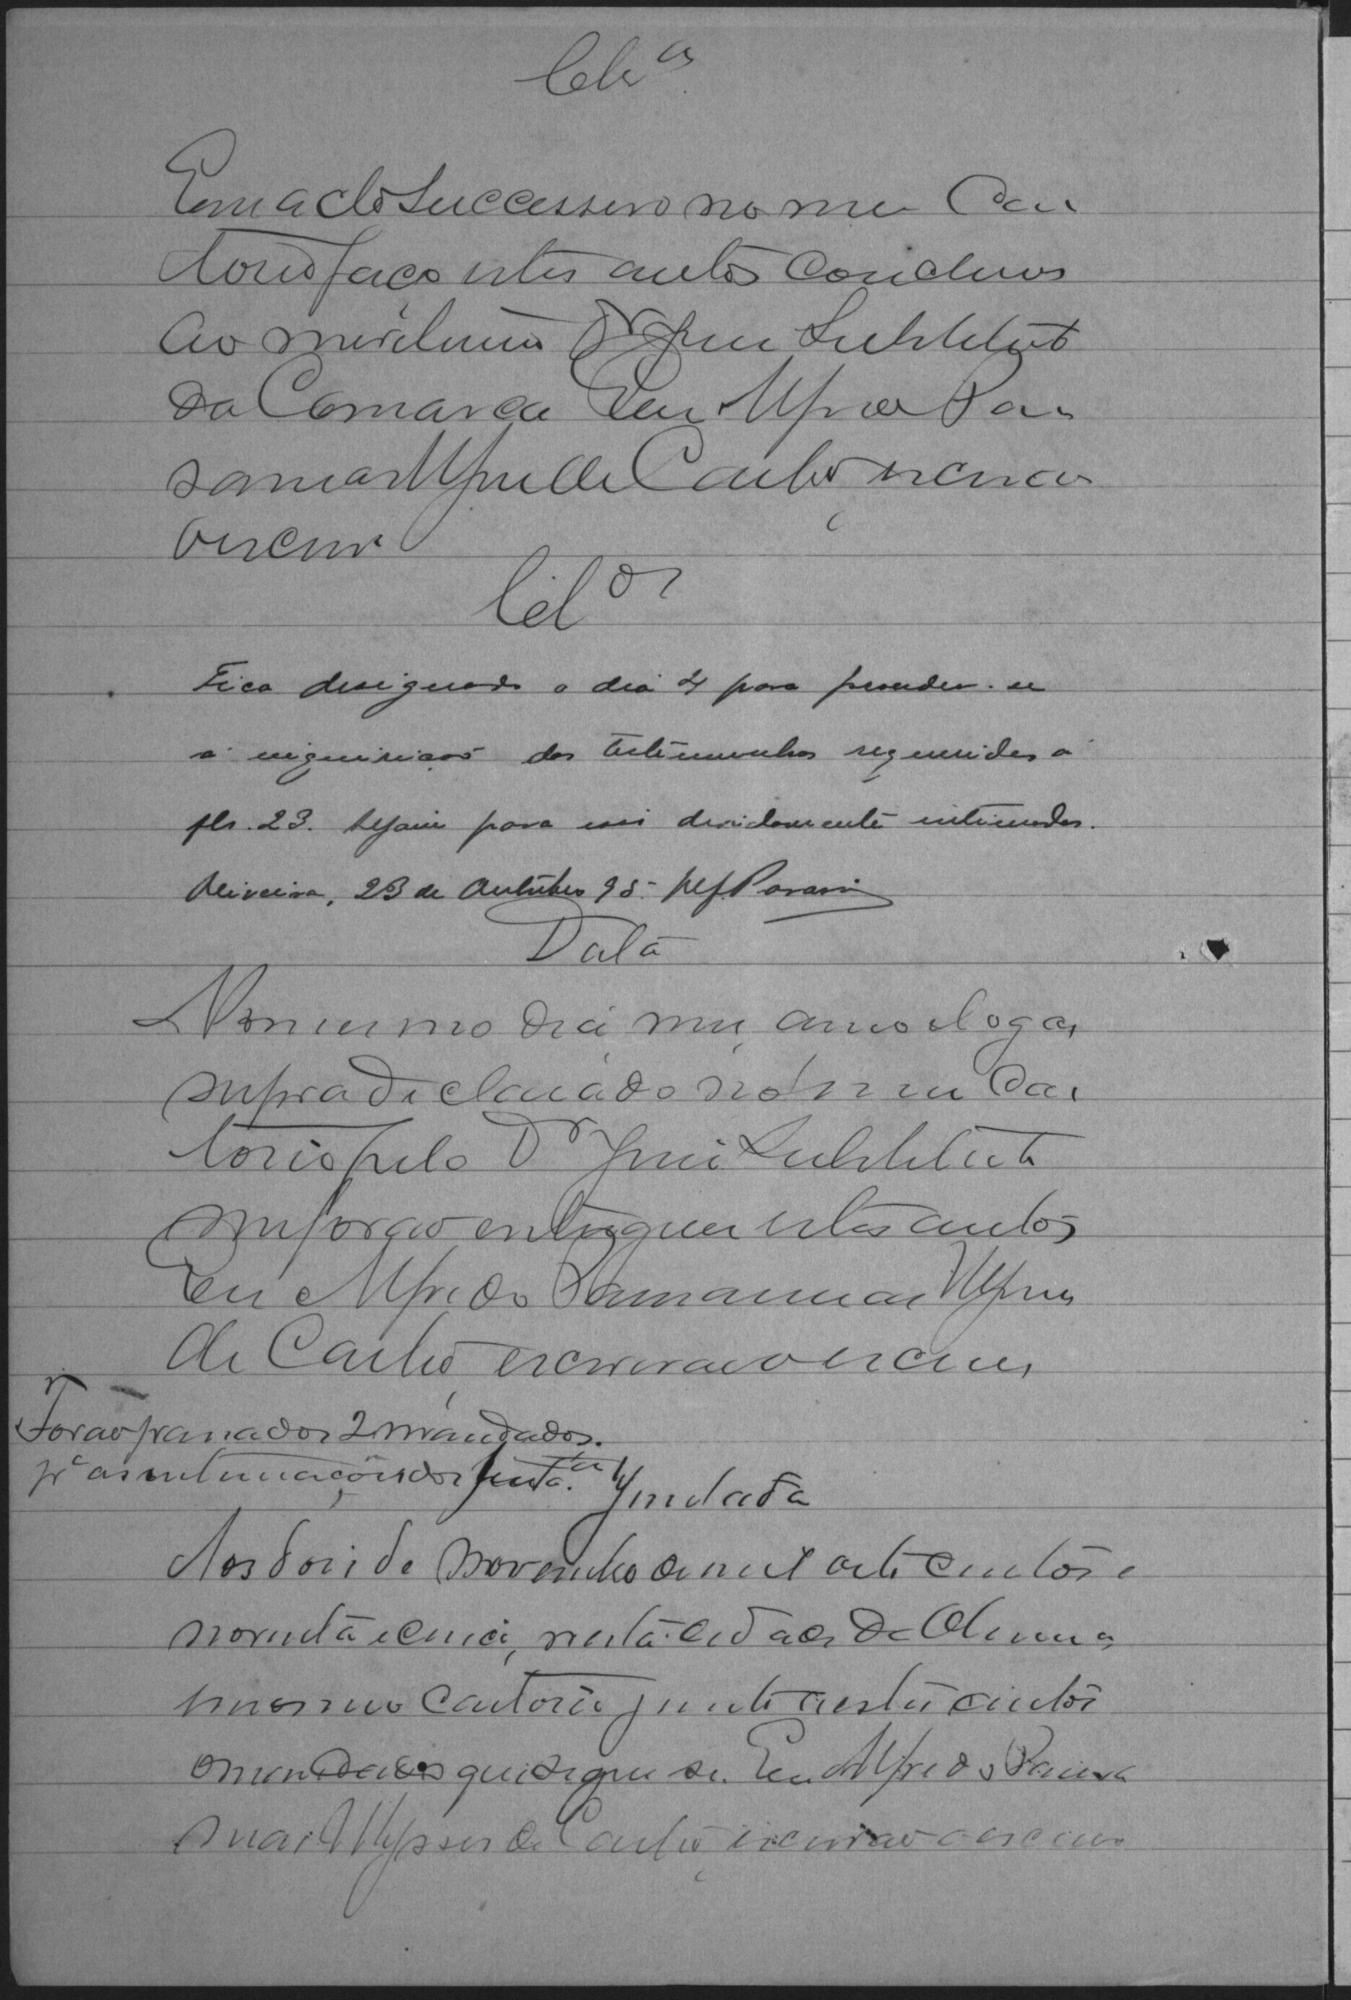 Cls.ᵃ
Em acto successivo no meu Car
torio faço estes autos conclusos
ao meritissimo Dʳ Juiz Substituto
da Comarca Eu Alfredo
de Castro, escrivão
escrevi
Clᵒˢ
Fica designado o dia 4 para proceder-se
a inquirição das testemunhas requeridas a
fls. 23. Sejam para isso devidamente intimadas.
Oliveira, 23 de Outubro 95.
Data
No mesmo dia, mez, anno e logar
supra declarado no meu Car
torio pelo Dʳ Juiz Substituto
me forão entregues estes autos
Eu Alfredo
de Castro, escrivão o escrevi
Forão passados 2 mandados.
pᵃ as intimações das
Juntada
Aos dois de Novembro de mil oito centos e
noventa e cinco, nesta cidade de Oliveira
em meu cartorio junto a estes autos
o mandado que segue-se. Eu Alfredo
Ulysses de Castro, escrivão o escrevi